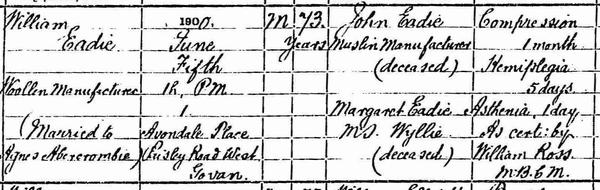 William
Eadie
Wollen Manufacturer
(Married to
Agnes Abercrombie)
1900.
June
Fifth
1h. P.M.
1
Avondale Place
(Paisley Road West
Govan.
M. 73.
Years
John Eadie
Muslin Manufacturer
(deceased)
Margaret Eadie
M.S. Wyllie
(deceased)
Compression
1 month
Hemiplegia
5 days.
Asthenia, 1 day,
As cert: by
William Ross
M.B.C.M.